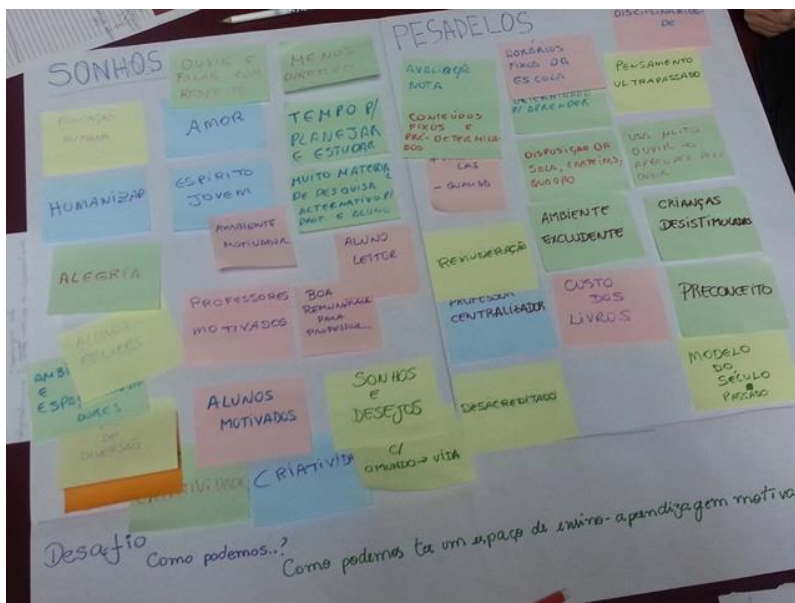 SONHOS
OUVIR E
FALAR COM
RESPEITO
MENOS
DIRETIVO
HUMANA
AMOR
TEMPO P/
PLANEJAR
E ESTUDAR
HUMANIZAR
ESPÍRITO
JOVEM
MUITO MATERIAL
DE PESQUISA
ALTERNATIVO P/
PROF. E ALUNO
AMBIENTE
MOTIVADOR
ALUNO
LEITOR
ALEGRIA
PROFESSORES
MOTIVADOS
BOA
PARA
PROFESSOR...
ALUNOS
FELIZES
AMBI
E
ESPA
ALUNOS
MOTIVADOS
SONHOS
E
DESEJOS
DIVERSÃO
CRIATIVIDA
C/
O MUNDO → VIDA
PESADELOS
DISCIPLINARIDA
DE
AVALIAÇÃO
NOTA
CONTEÚDOS
FIXOS E
PRÉ-DETERMINA
DOS
HORÁRIOS
FIXOS DA
ESCOLA
P/ APRENDER
PENSAMENTO
ULTRAPASSADO
LAS
DISPOSIÇÃO DA
SALA, CARTEIRAS,
QUADRO
USA MUITO
OUVIR
OUVIR
REMUNERAÇÃO
AMBIENTE
EXCLUDENTE
CRIANÇAS
DESISTIMULADAS
PROFESSOR
CENTRALIZADOR
CUSTO
DOS
LIVROS
PRECONCEITO
DESACREDITADO
MODELO
DO
SÉCULO
PASSADO
Desafio Como podemos..?
Como podemos ter um espaço de ensino-aprendizagem motiva